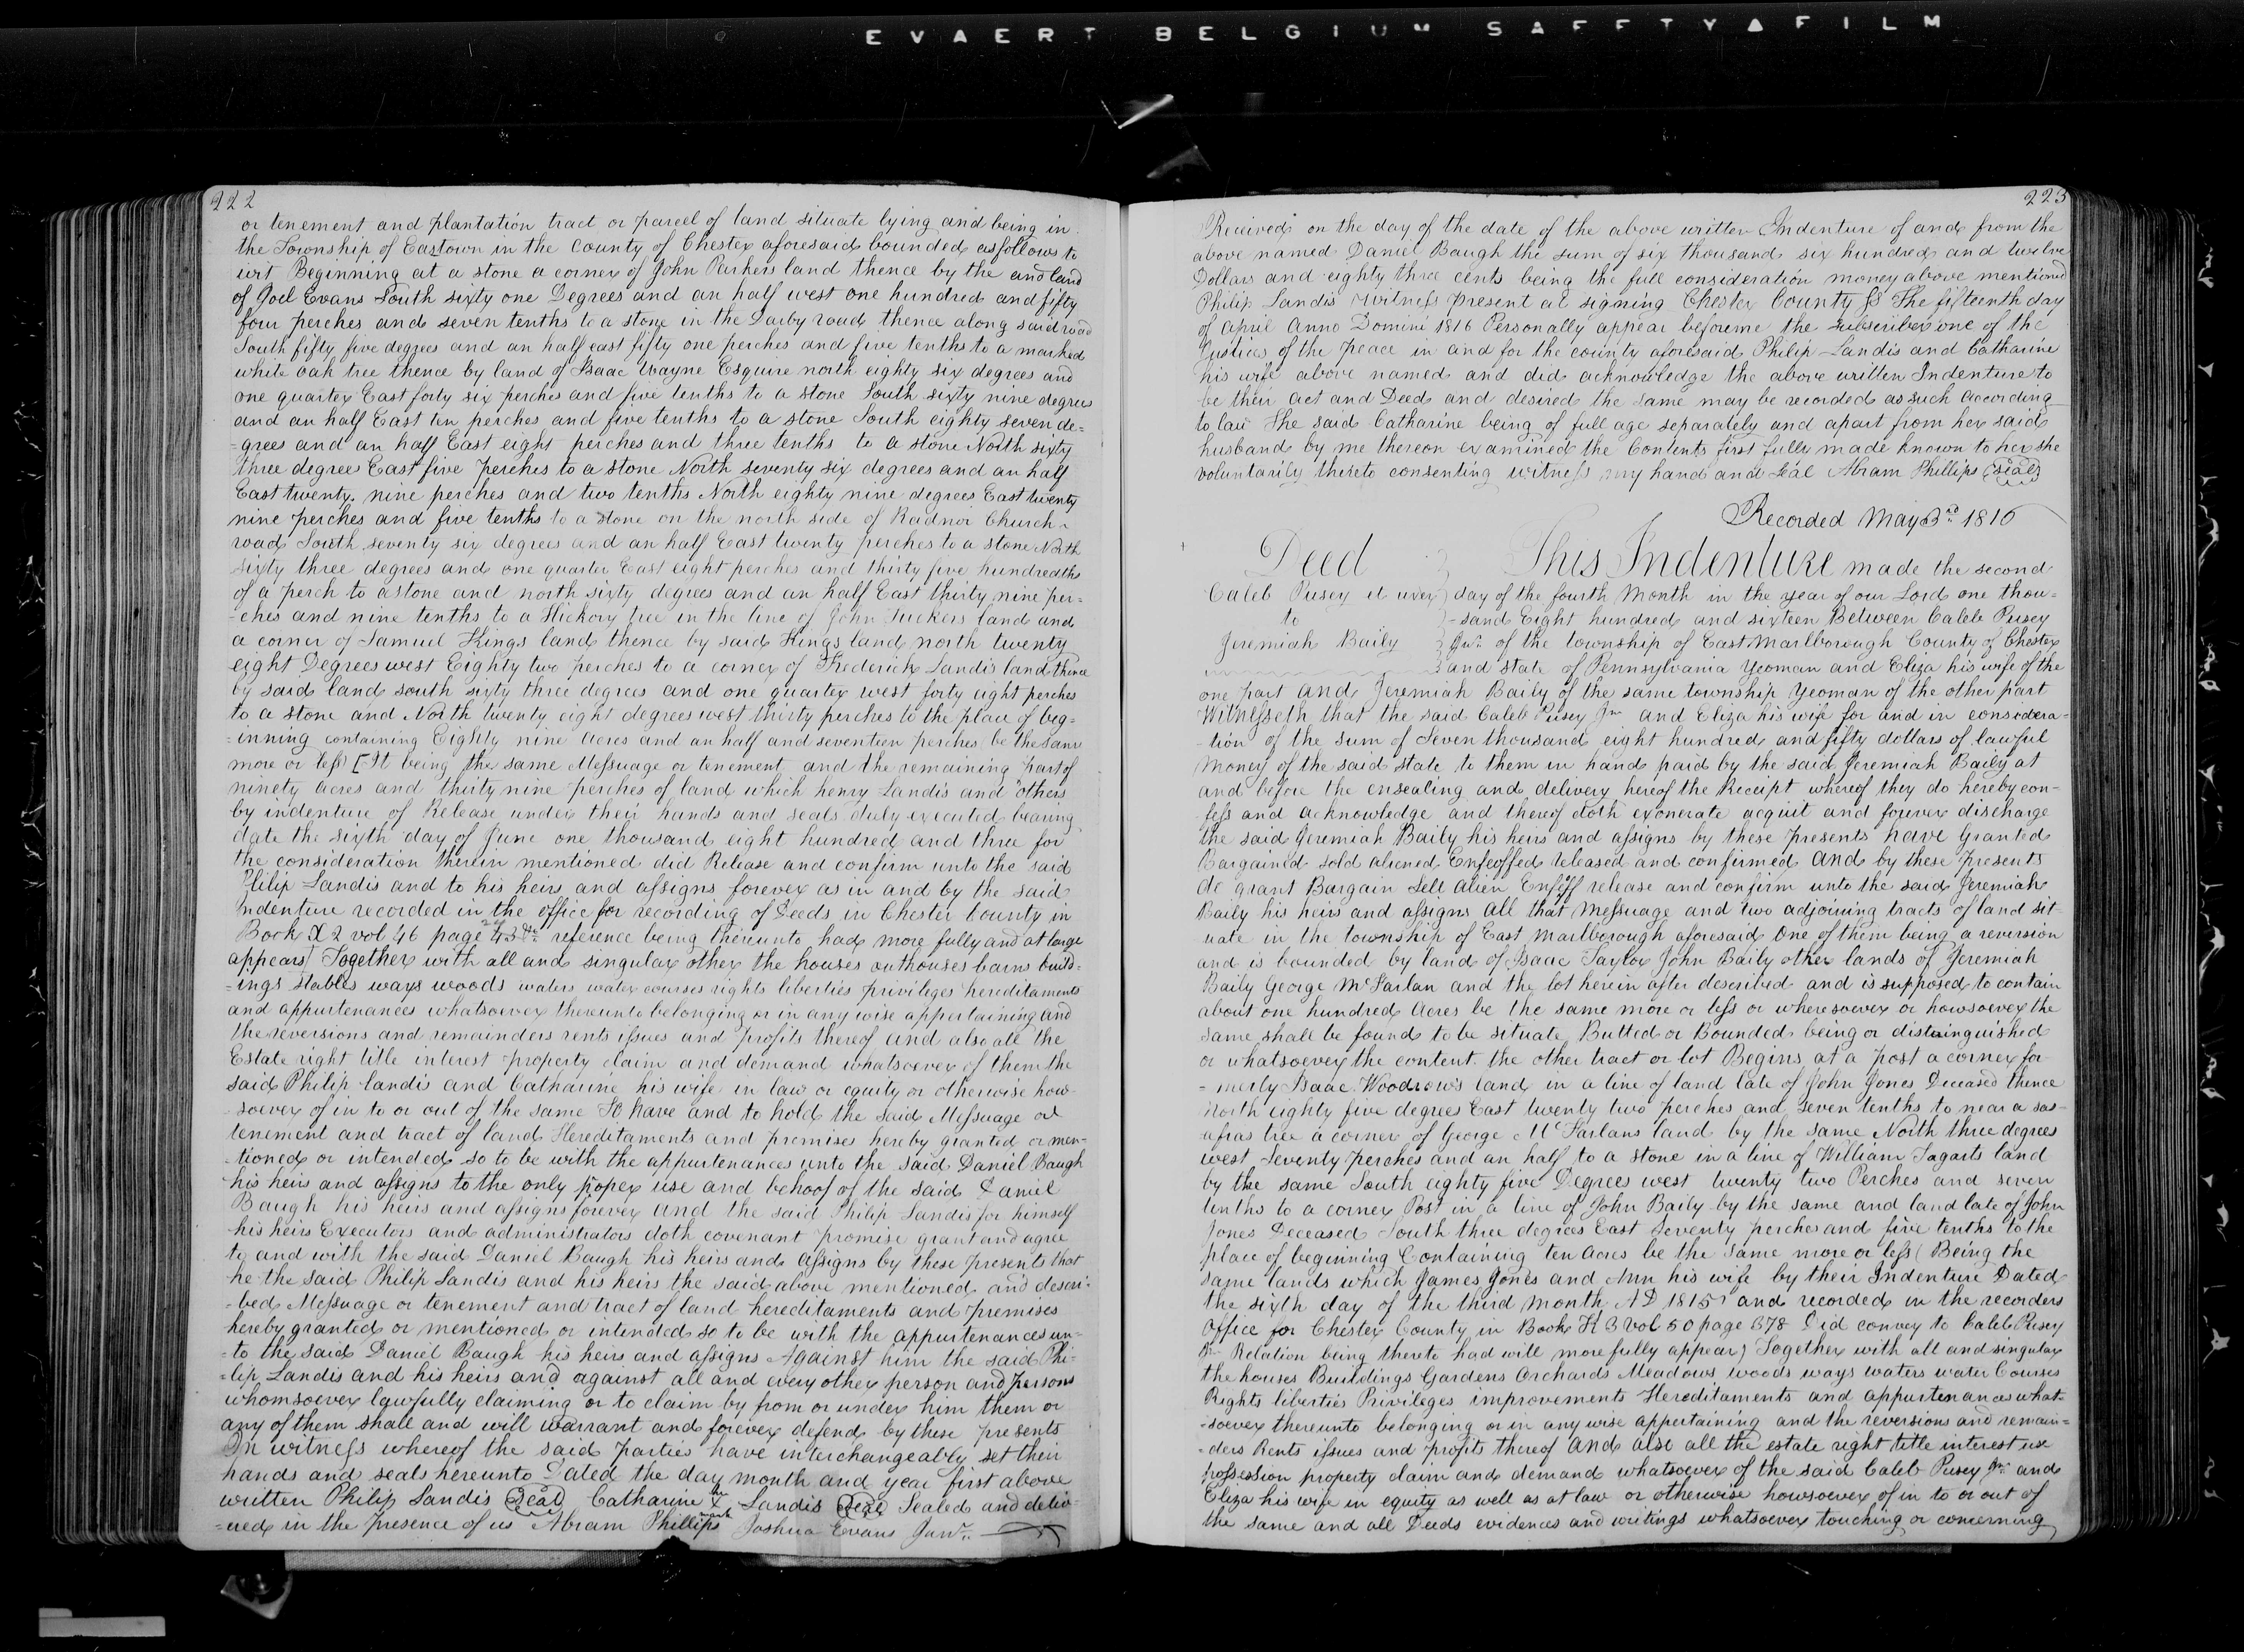 EVAERT BELGIUM SAFETY▲FILM
222
or tenement and plantation tract or parcel of land situate lying and being in
the Township of Eastown in the County of Chester aforesaid bounded as follows to
wit Beginning at a stone a corner of John Parkers land thence by the and land
of Joel Evans South sixty one Degrees and an half west one hundred and fifty
four perches and seven tenths to a stone in the Darby road thence along said road
South fifty five degrees and an half east fifty one perches and five tenths to a marked
white oak tree thence by land of Isaac Wayne Esquire north eighty six degrees and
one quarter East forty six perches and five tenths to a stone South sixty nine degrees
and an half East ten perches and five tenths to a stone South eighty seven de=
=grees and an half East eight perches and three tenths to a stone North sixty
three degrees East five perches to a stone North seventy six degrees and an half
East twenty nine perches and two tenths North eighty nine degrees East twenty
nine perches and five tenths to a stone on the north side of Radnor Church
road South seventy six degrees and an half East twenty perches to a stone North
sixty three degrees and one quarter East eight perches and thirty five hundredths
of a perch to a stone and north sixty degrees and an half East thirty nine per=
-ches and nine tenths to a Hickory tree in the line of John Tuckers land and
a corner of Samuel Kings land thence by said Kings land north twenty
eight Degrees west Eighty two perches to a corner of Frederick Landis land thence
by said land south sixty three degrees and one quarter west forty eight perches
to a stone and North twenty eight degrees west thirty perches to the place of beg=
=inning containing Eighty nine acres and an half and seventeen perches (be the same
more or less) [It being the same Messuage or tenement and the remaining part of
ninety acres and thirty nine perches of land which henry Landis and others
by indenture of Release under their hands and seals duly executed bearing
date the sixth day of June one thousand eight hundred and three for
the consideration therein mentioned did Release and confirm unto the said
Philip Landis and to his heirs and assigns forever as in and by the said
Indenture recorded in the office for recording of Deeds in Chester County in
Book X 2 vol 46 page 243 &c reference being thereunto had more fully and at large
appears] Together with all and singular other the houses outhouses barns build=
=ings stables ways woods waters water courses rights liberties privileges hereditaments
and appurtenances whatsoever thereunto belonging or in any wise appertaining and
the reversions and remainders rents issues and profits thereof and also all the
Estate right title interest property claim and demand whatsoever of them the
said Philip Landis and Catharine his wife in law or equity or otherwise how-
soever of in to or out of the same To have and to hold the said Messuage or
tenement and tract of land Hereditaments and premises hereby granted or men-
-tioned or intended so to be with the appurtenances unto the said Daniel Baugh
his heirs and assigns to the only proper use and behoof of the said Daniel
Baugh his heirs and assigns forever and the said Philip Landis for himself
his heirs Executors and administrators doth covenant promise grant and agree
to and with the said Daniel Baugh his heirs and assigns by these presents that
he the said Philip Landis and his heirs the said above mentioned and descri=
-bed Messuage or tenement and tract of land hereditaments and premises
hereby granted or mentioned or intended so to be with the appurtenances un-
=to the said Daniel Baugh his heirs and assigns Against him the said Phi=
=lip Landis and his heirs and against all and every other person and persons
whomsoever lawfully claiming or to claim by from or under him them or
any of them shall and will warrant and forever defend by these presents
In witness whereof the said parties have interchangeably set their
hands and seals hereunto Dated the day month and year first above
written Philip Landis Seal Catharine her x mark Landis Seal Sealed and deliv
=ered in the presence of us Abram Phillips Joshua Evans Junr.
223
Received on the day of the date of the above written Indenture of and from the
above named Daniel Baugh the sum of six thousand six hundred and twelve
Dollars and eighty three cents being the full consideration money above mentioned
Philip Landis Witness present at signing Chester County ss The fifteenth day
of april Anno Domini 1816 Personally appear before me the subscriber one of the
Justices of the peace in and for the county aforesaid Philip Landis and Catharine
his wife above named and did acknowledge the above written Indenture to
be their act and Deed and desired the same may be recorded as such according
to law The said Catharine being of full age separately and apart from her said
husband by me thereon examined the Contents first fully made known to her she
voluntarily thereto consenting witness my hand and Seal Abram Phillips Seal
Recorded May 3rd 1816
Deed This Indenture made the second
Caleb Pusey et uxer day of the fourth Month in the year of our Lord one thou=
to -sand Eight hundred and sixteen Between Caleb Pusey
Jeremiah Baily Jnr. of the township of East Marlborough County of Chester
and state of Pennsylvania Yeoman and Eliza his wife of the
one part and Jeremiah Baily of the same township Yeoman of the other part
Witnesseth that the said Caleb Pusey Jnr and Eliza his wife for and in considera=
-tion of the sum of Seven thousand eight hundred and fifty dollars of lawful
Money of the said state to them in hand paid by the said Jeremiah Baily at
and before the ensealing and delivery hereof the Receipt whereof they do hereby con-
fess and acknowledge and thereof doth exonerate acquit and forever discharge
the said Jeremiah Baily his heirs and assigns by these presents have Granted
Bargained sold aliened Enfeoffed released and confirmed and by these presents
do grant Bargain Sell alien Enfeff release and confirm unto the said Jeremiah
Baily his heirs and assigns all that Messuage and two adjoining tracts of land sit-
uate in the township of East Marlborough aforesaid One of them being a reversion
and is bounded by land of Isaac Taylor John Baily other lands of Jeremiah
Baily George McFarlan and the lot herein after described and is supposed to contain
about one hundred Acres be the same more or less or wheresoever or howsoever the
same shall be found to be situate Butted or Bounded being or distuinguished
or whatsoever the content the other tract or lot Begins at a post a corner for
- merly Isaac Woodrow's land in a line of land late of John Jones Deceased thence
North eighty five degrees East twenty two perches and seven tenths to near a sas-
safras tree a corner of George McFarlans land by the same North three degrees
west Seventy perches and an half to a stone in a line of William Tagarts land
by the same South eighty five Degrees west twenty two Perches and seven
tenths to a corner Post in a line of John Baily by the same and land late of John
Jones Deceased South three degrees East Seventy perches and five tenths to the
place of beginning Containing ten acres be the same more or less (Being the
same lands which James Jones and Ann his wife by their Indenture Dated
the sixth day of the third Month AD 1815 and recorded in the recorders
Office for Chester County in Book K 3 vol 50 page 378 Did convey to Caleb Pusey
Jnr Relation being thereto had will more fully appear) Together with all and singular
the houses Buildings Gardens Orchards Meadows woods ways waters water Courses
Rights liberties Privileges improvements Hereditaments and appurtenances what-
-soever thereunto belonging or in any wise appertaining and the reversions and remain=
-ders Rents issues and profits thereof and also all the estate right title interest use
possession property claim and demand whatsoever of the said Caleb Pusey Jnr and
Eliza his wife in equity as well as at law or otherwise howsoever of in to or out of
the same and all Deeds evidences and writings whatsoever touching or concerning